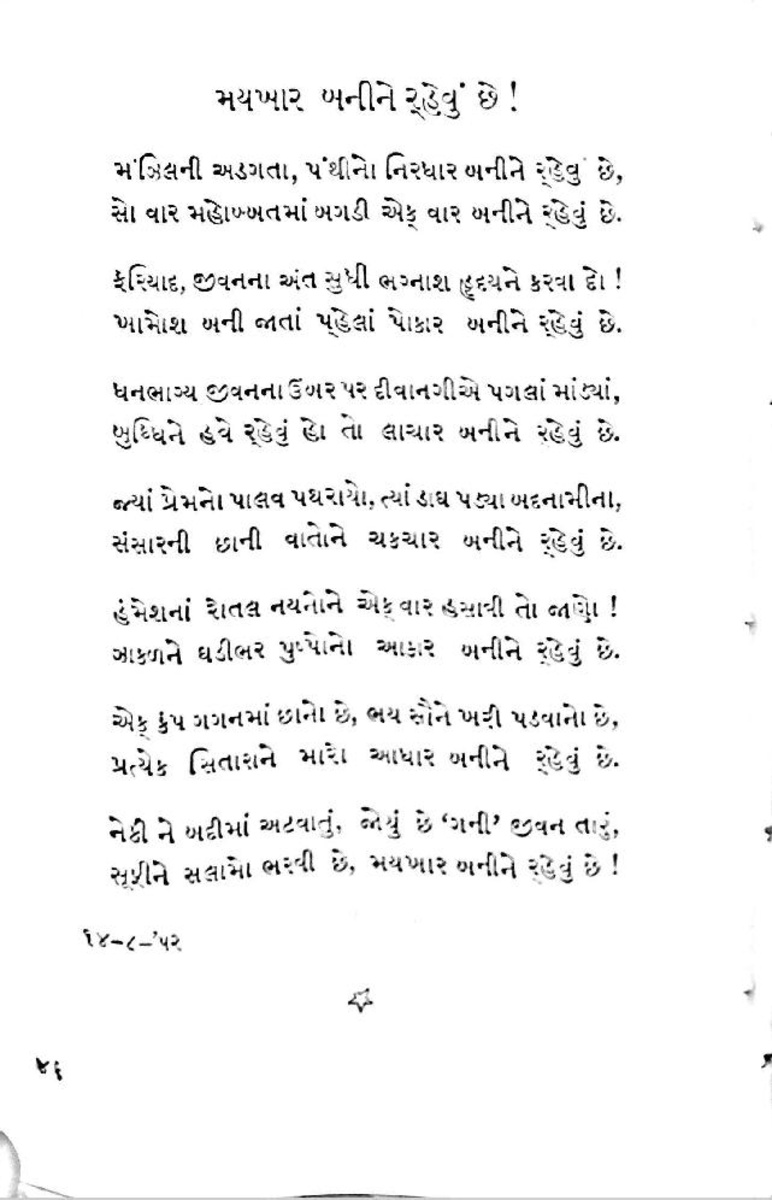 મયખાર બનીને ર્‌હેવું છે !
મંઝિલની અડગતા, પંથીનો નિરધાર બનીને ર્‌હેવું છે,
સો વાર મહોબ્બતમાં બગડી એક્ વાર બનીને ર્‌હેવું છે.
ફરિયાદ, જીવનના અંત સુધી ભગ્નાશ હૃદયને કરવા દો !
ખામોશ બની જાતાં પ્‌હેલાં પોકાર બનીને ર્‌હેવું છે.
ધનભાગ્ય જીવનના ઉંબર પર દીવાનગીએ પગલાં માંડ્યાં,
બુધ્ધિને હવે ર્‌હેવું હો તો લાચાર બનીને રહેવું છે.
જ્યાં પ્રેમનો પાલવ પથરાયો, ત્યાં ડાઘ પડ્યા બદનામીના,
સંસારની છાની વાતોને ચકચાર બનીને ર્‌હેવું છે.
હંમેશનાં રોતલ નયનોને એક્ વાર હસાવી તો જાણો !
ઝાકળને ઘડીભર પુષ્પોનો આકાર બનીને ર્‌હેવું છે.
એક્ કંપ ગગનમાં છાનો છે, ભય સૌને ખરી પડવાનો છે,
પ્રત્યેક સિતારાને મારો આધાર બનીને ર્‌હેવું છે.
નેકી ને બદીમાં અટવાતું, જોયું છે ‘ગની’ જીવન તારું,
સૃષ્ટીને સલામો ભરવી છે, મયખાર બનીને ર્‌હેવું છે !
૧૪-૮-’૫૨
૪૬